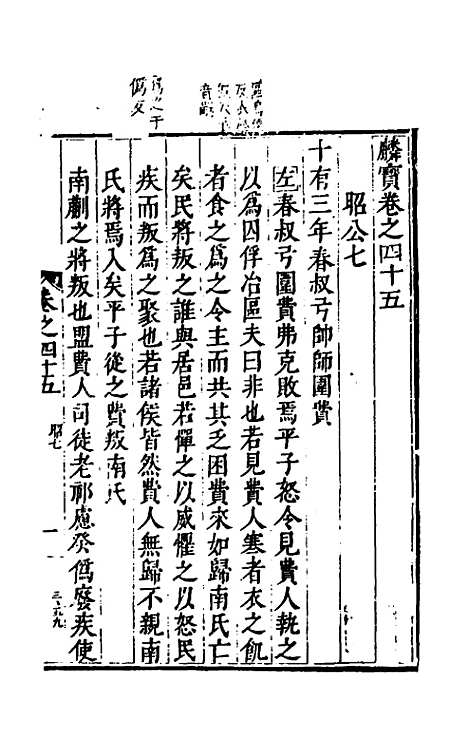 麟寶卷之四十五
昭公七
十有三年春叔弓帥師圍費
左春叔弓圍費弗克敗焉平子怒令見費人執之
以爲囚俘冶區夫曰非也若見費人寒者衣之飢
者食之爲之令主而共其乏困費來如歸南氏亡
矣民將叛之誰與居邑若憚之以威懼之以怒民
疾而叛爲之聚也若諸侯皆然費人無歸不親南
氏將焉入矣平子從之費叛南氏
南蒯之將叛也盟費人司徒老祁慮癸僞廢疾使
卷之四十五
昭七
一